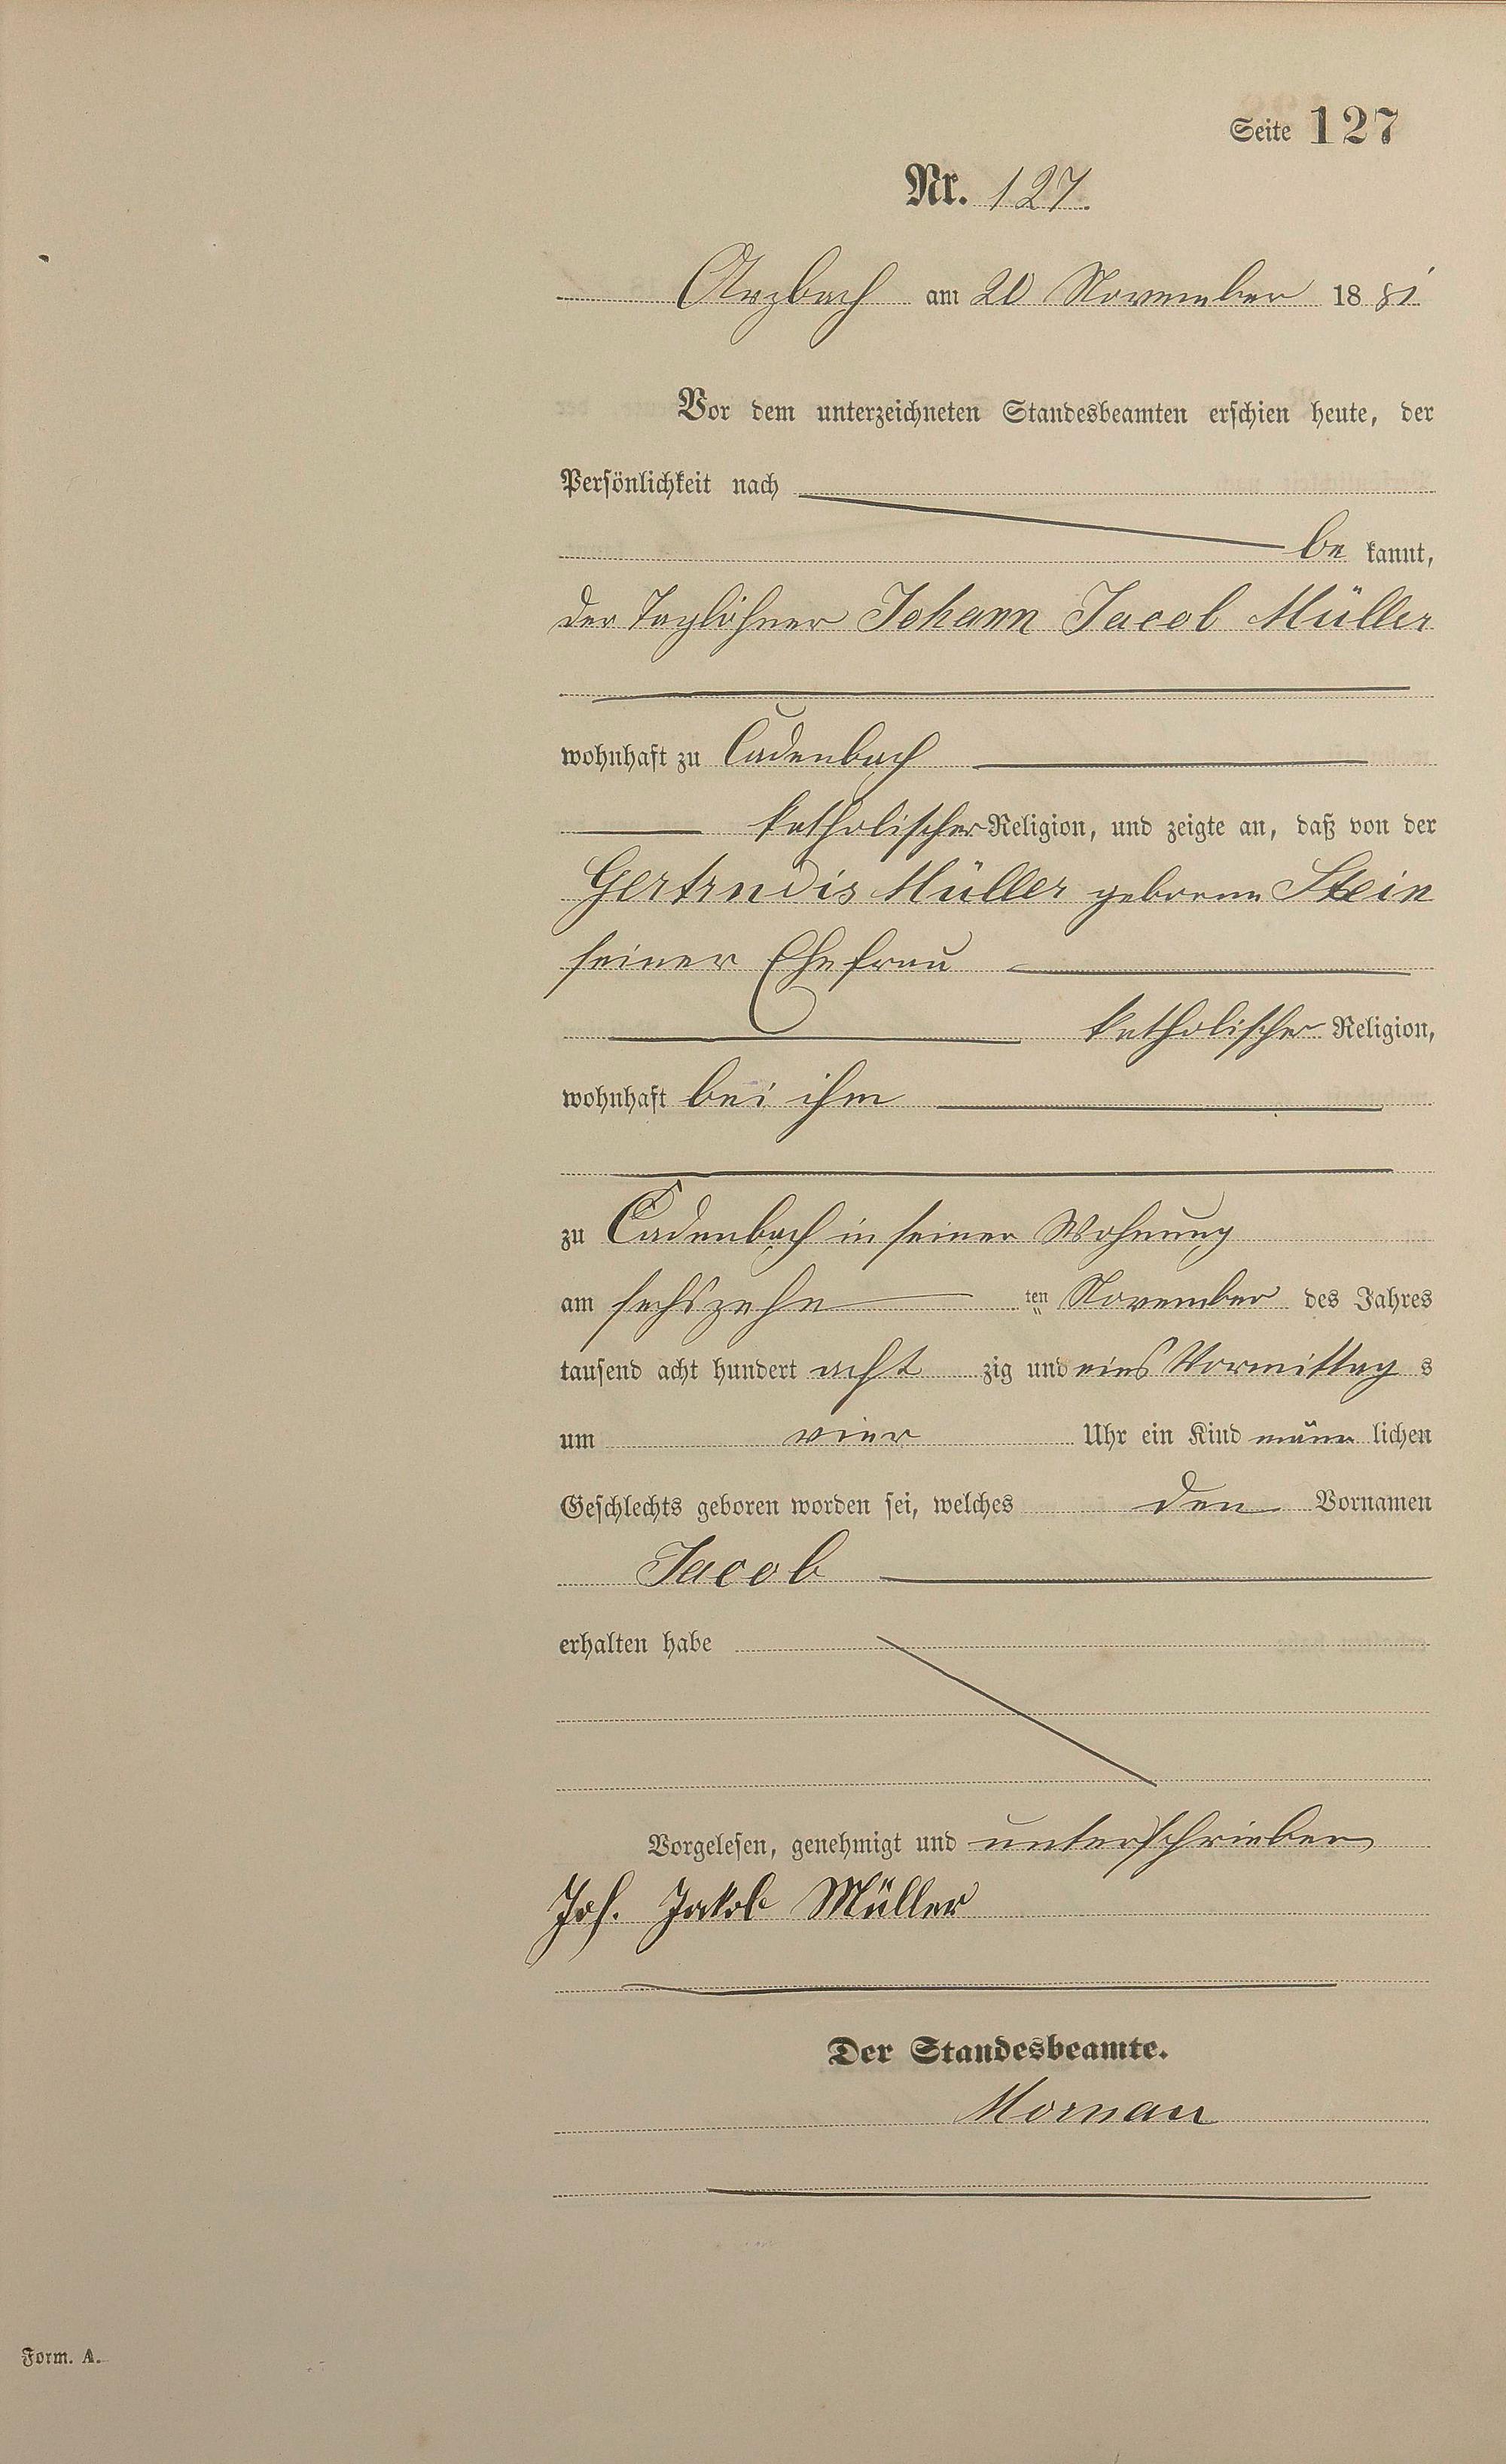 Seite 127
Nr. 127.
Arzbach am 20 November 1881
Vor dem unterzeichneten Standesbeamten erschien heute, der
Persönlichkeit nach
be kannt,
der Taglöhner Johann Jacob Müller
wohnhaft zu Cadenbach
katholischer Religion, und zeigte an, daß von der
Gertrudis Müller geborne Stein
seiner Ehefrau
katholischer Religion,
wohnhaft bei ihm
zu Cadenbach in seiner Wohnung
am sechszehn ten November des Jahres
tausend acht hundert acht zig und eins Vormittag s
um vier Uhr ein Kind männ lichen
Geschlechts geboren worden sei, welches den Vornamen
Jacob
erhalten habe
Vorgelesen, genehmigt und unterschrieben
Joh. Jakob Müller
Der Standesbeamte.
Mornau
Form. A.